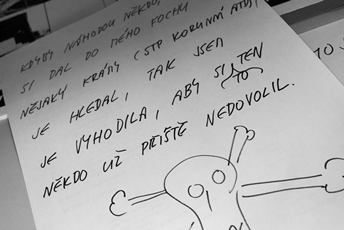 KDYBY NÁHODOU NĚKDO,
SI DAL DO MÉHO FOCHU
NĚJAKÝ KRÁMY (STP KORUNNÍ ATD)
JE HLEDAL, TAK JSEM
JE VYHODILA, ABY SI TEN
NĚKDO UŽ PŘÍŠTĚ NEDOVOLIL.
TO